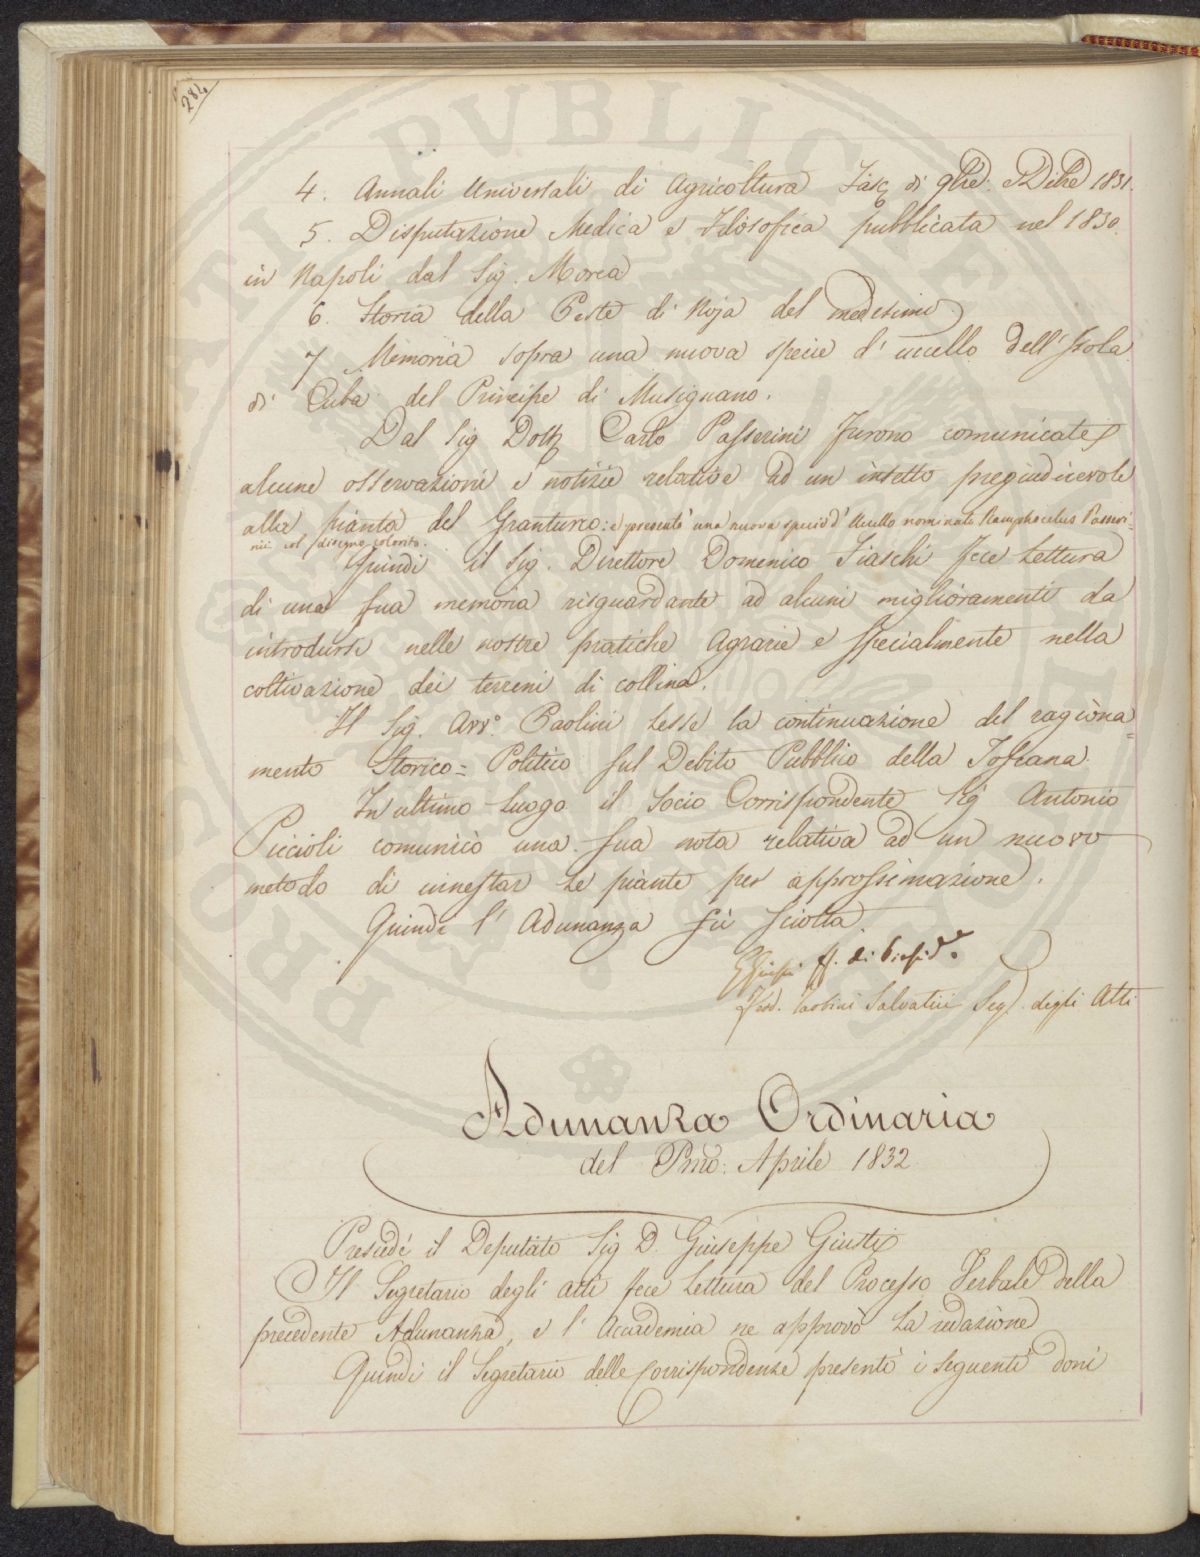 284
4. Annali Universali di Agricoltura Fasc di 9bre: e Dibre 1831.
5. Disputazione Medica e Filosofica pubblicata nel 1830.
in Napoli dal Sig. Morea
6. Storia della Peste di Noja del medesimo
7 Memoria sopra una nuova specie d'uccello dell'Isola
di Cuba del Principe di Musignano.
Dal Sig Dott Carlo Passerini furono comunicate
alcune osservazioni e notizie relative ad un insetto pregiudicevole
alla pianta del Granturco: e presentò una nuova specie d'Uccello nominato Ramphocelus Passeri-
nii col disegno colorito.
Quindi il Sig. Direttore Domenico Fiaschi fece Lettura
di una sua memoria risguardante ad alcuni miglioramenti da
introdursi nelle nostre pratiche Agrarie e specialmente nella
coltivazione dei terreni di collina.
Il Sig. Avv.º Paolini Lesse la continuazione del ragiona=
mento Storico=Politico sul Debito Pubblico della Toscana.
In ultimo Luogo il Socio Corrispondente Sig Antonio
Piccioli comunicò una sua nota relativa ad un nuovo
metodo di innestar Le piante per approssimazione.
Quindi l'Adunanza fù sciolta.
GGiusti ff. di
Salvatici Seg. degli Atti
Adunanza Ordinaria
del Pmo: Aprile 1832
Presiedé il Deputato Sig D. Giuseppe Giusti
Il Segretario degli atti fece Lettura del Processo Verbale della
precedente Adunanza, e l'Accademia ne approvò La redazione
Quindi il Segretario delle Corrispondenze presentò i seguenti doni